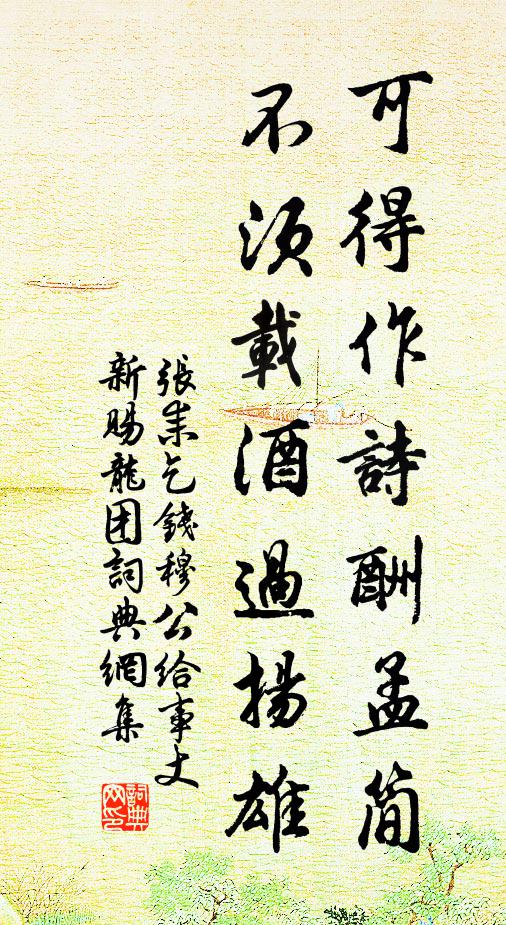 可得作詩酬孟简
不須載酒過揚雄
張耒乞錢穆公給事丈
新賜龍团詞典網集
詞典网印